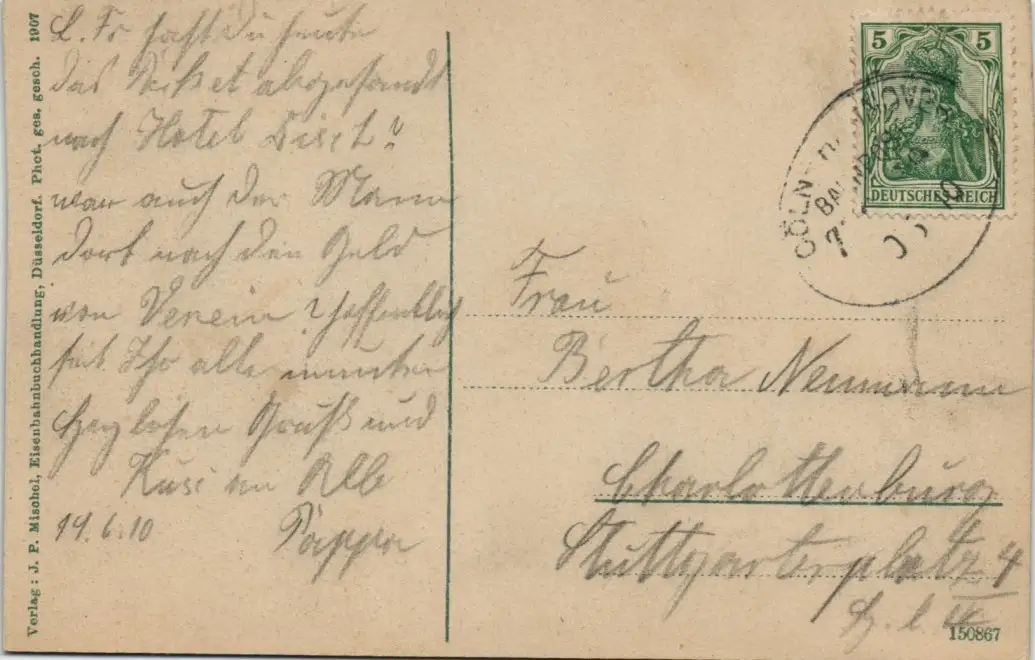 Verlag: J. P. Mischel, Eisenbahnbuchhandlung, Düsseldorf. Phot. ges. gesch. 1907
L. Fr hast du heute
das Packet abgesandt
nach Hotel Disch?
war auch der Mann
dort nach den Geld
von Verein? hoffentlich
seit Ihr alle munter
Herzlichen Gruß und
Kuss an Alle
19.6.10 Pappa
5 5
DEUTSCHES REICH
CÖLN
Frau
Bertha Neumann
Charlottenburg
Stuttgarterplatz 4
150867